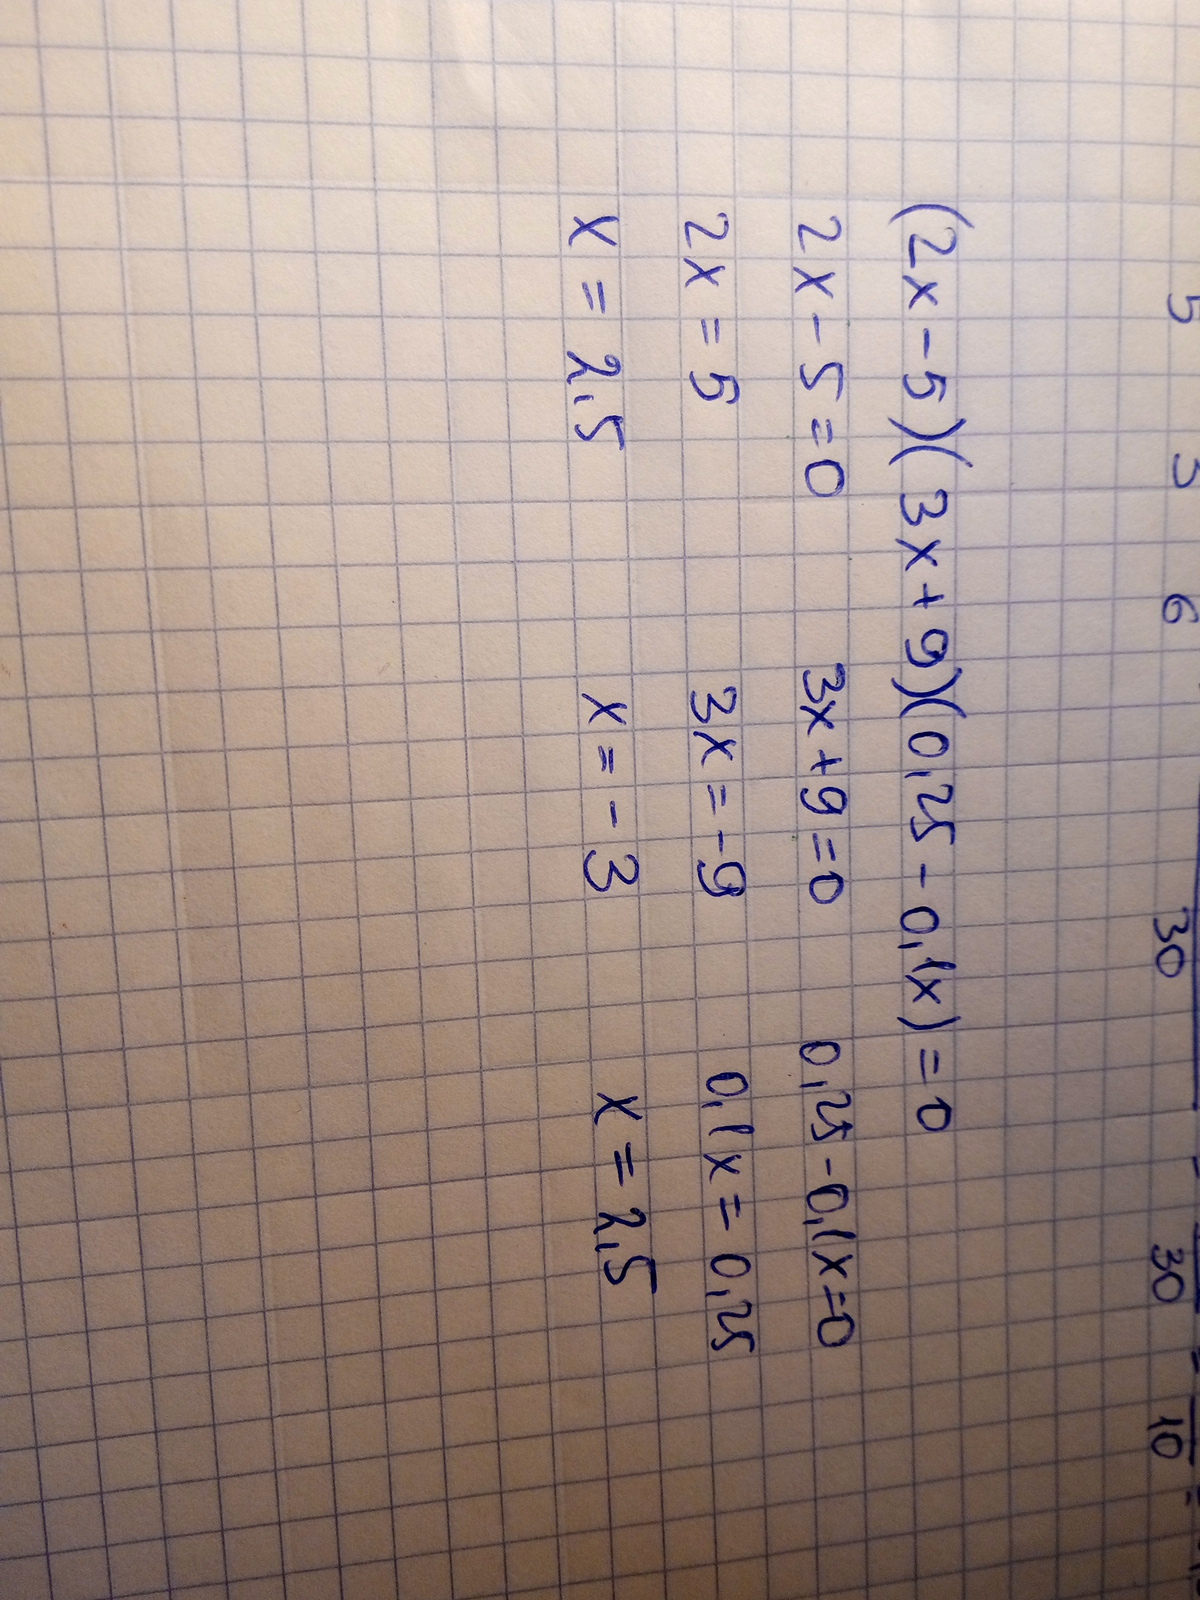 5 3 6
30 30 10
(2x-5)(3x+9)(0,25-0,1x)=0
2x-5=0 3x+9=0 0,25-0,1x=0
2x=5 3x=-9 0,1x=0,25
x=2,5 x=-3 x=2,5